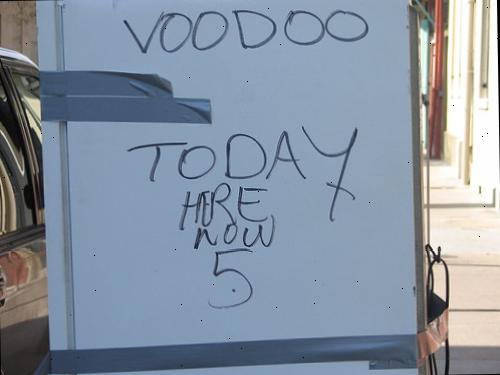 VOODOO
TODAY
HERE
NOW
5